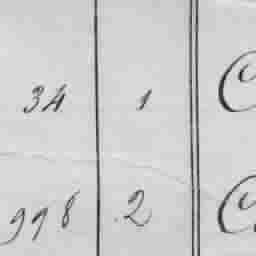 34 1 C
998 2 C